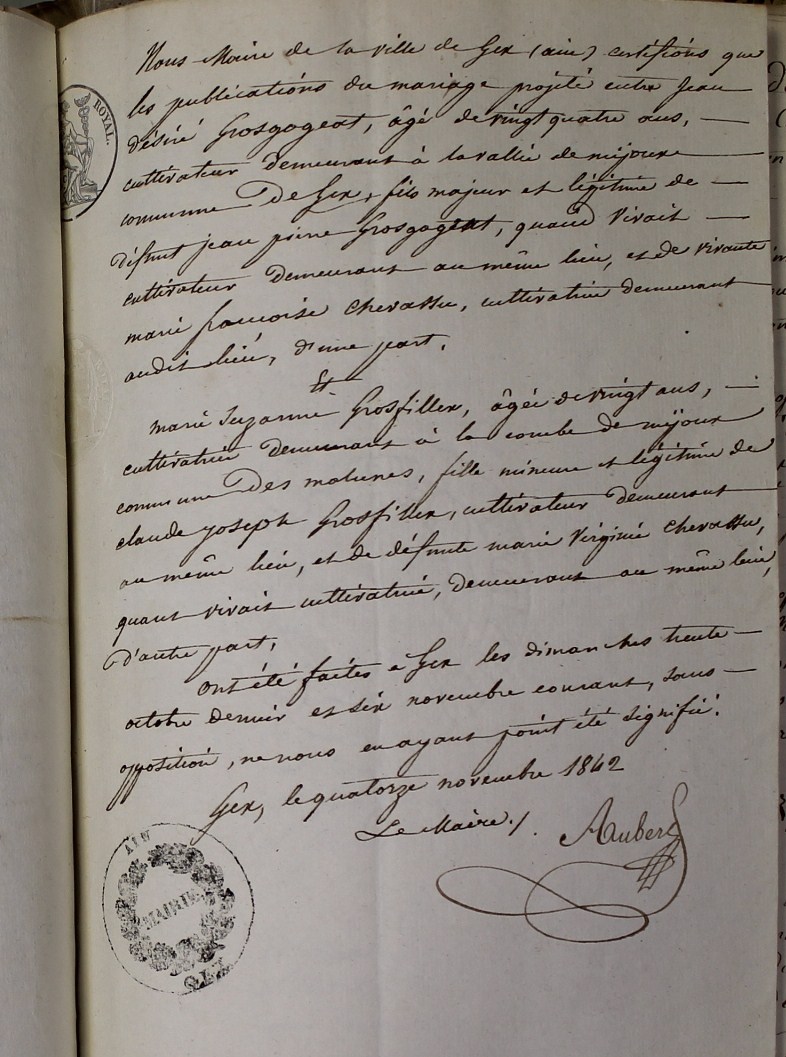 ROYAL.
Nous Maire de la ville de Gex (ain) certifions que
les publications du mariage projeté entre Jean
désiré Grosgogeat, âgé de vingt quatre ans, —
cultivateur demeurant à la vallée de mijoux —
commune De Gex, fils majeur et légitime de —
défunt jean pierre Grosgogeat, quand vivait —
cultivateur demeurant au même lieu, et de vivante
marie françoise chevassu, cultivatrice demeurant
audit lieu, d'une part.
Et
marie Suzanne Grosfiller, âgée de vingt ans, —
cultivatrice demeurant à la combe de mijoux
commune Des molunes, fille mineure et légitime de
claude joseph Grosfiller, cultivateur demeurant
au même lieu, et de défunte marie Virginie chevassu,
quant vivait cultivatrice, demeurant au même lieu,
d'autre part.
ont été faites à Gex les dimanches trente —
octobre dernier et six novembre courant, sans —
opposition, ne nous en ayant point été signifié.
Gex, le quatorze novembre 1842
Le Maire /. Aubert
AIN
MAIRIE